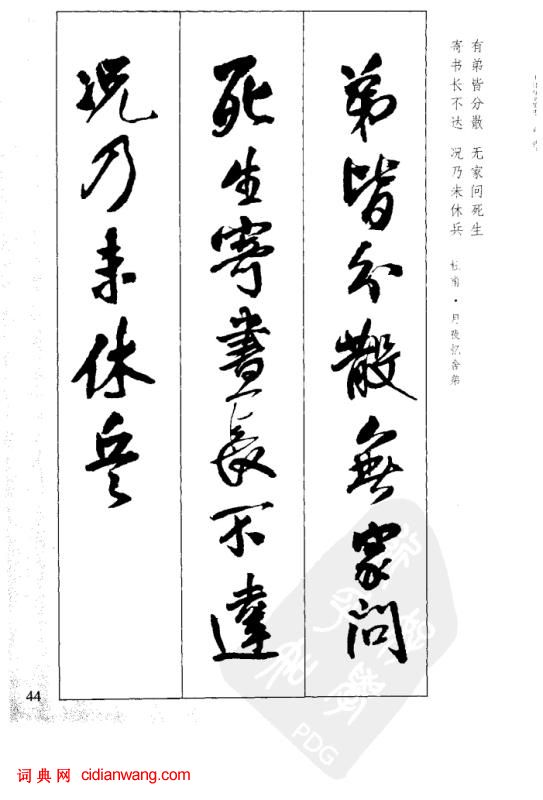 有弟皆分散 无家问死生
寄书长不达 况乃未休兵 杜甫·月夜忆舍弟
弟皆分散無家問
死生寄書長不達
况乃未休兵
44
PDG
词典网 cidianwang.com